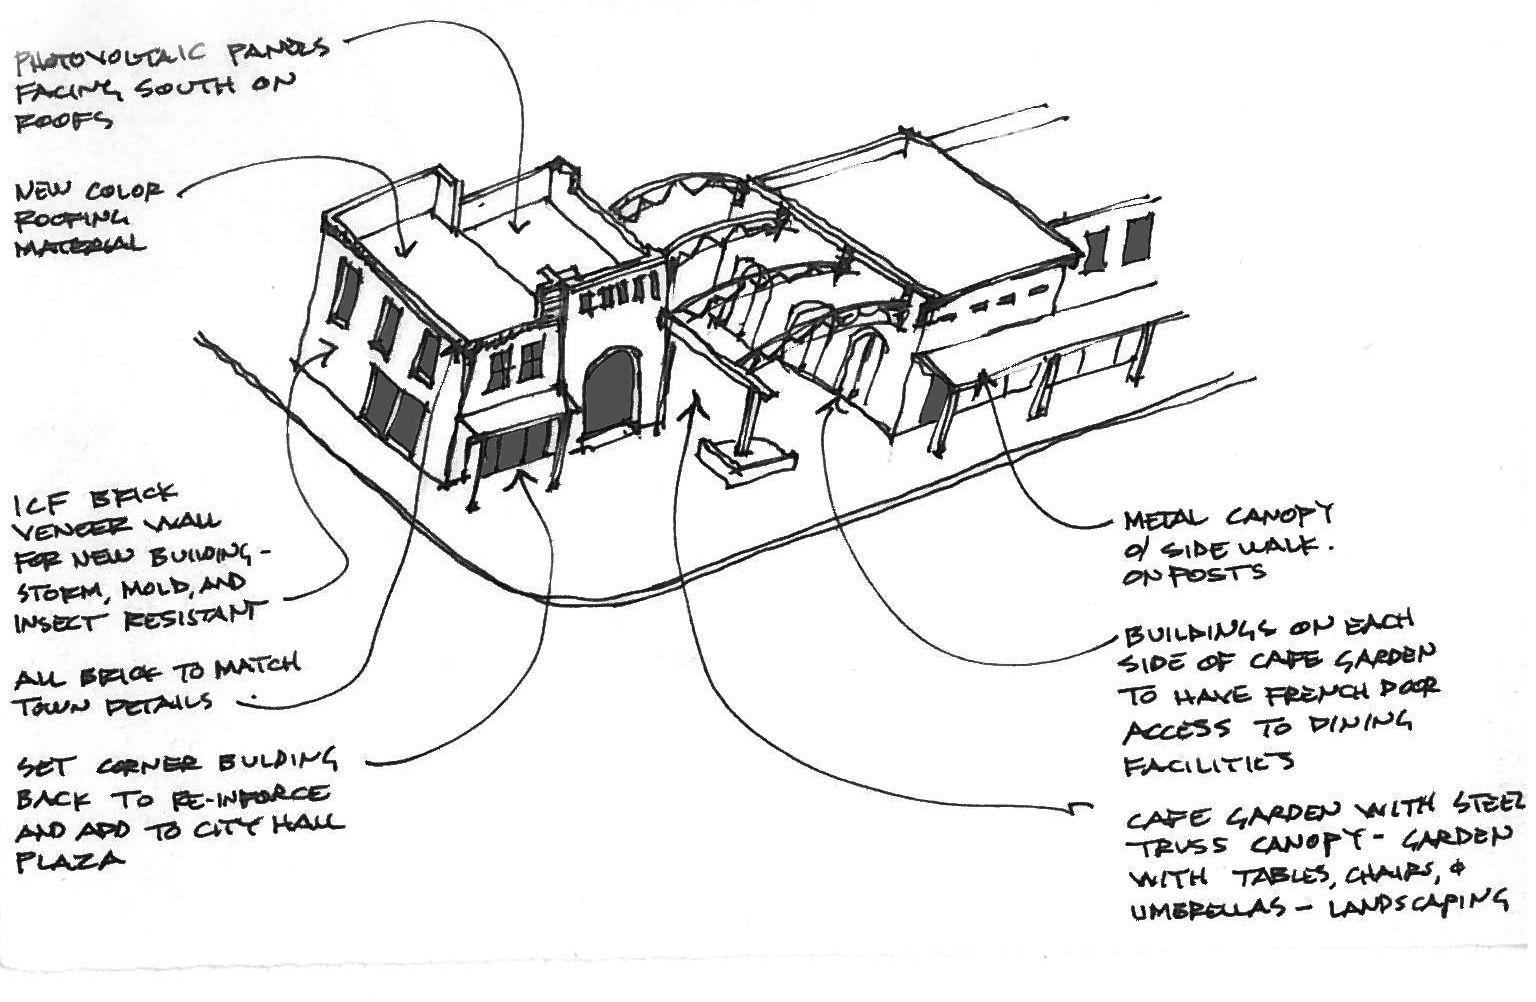 PHOTOVOLTAIC PANELS
FACING SOUTH ON
ROOFS
NEW COLOR
ROOFING
MATERIAL
ICF BRICK
VENEER WALL
FOR NEW BUILDING -
STORM, MOLD, AND
INSECT RESISTANT
ALL BRICK TO MATCH
TOWN DETAILS
SET CORNER BULDING
BACK TO RE-INFORCE
AND ADD TO CITY HALL
PLAZA
METAL CANOPY
O/ SIDEWALK.
ON POSTS
BUILDINGS ON EACH
SIDE OF CAFE GARDEN
TO HAVE FRENCH DOOR
ACCESS TO DINING
FACILITIES
CAFE GARDEN WITH STEEL
TRUSS CANOPY - GARDEN
WITH TABLES, CHAIRS, &
UMBRELLAS - LANDSCAPING